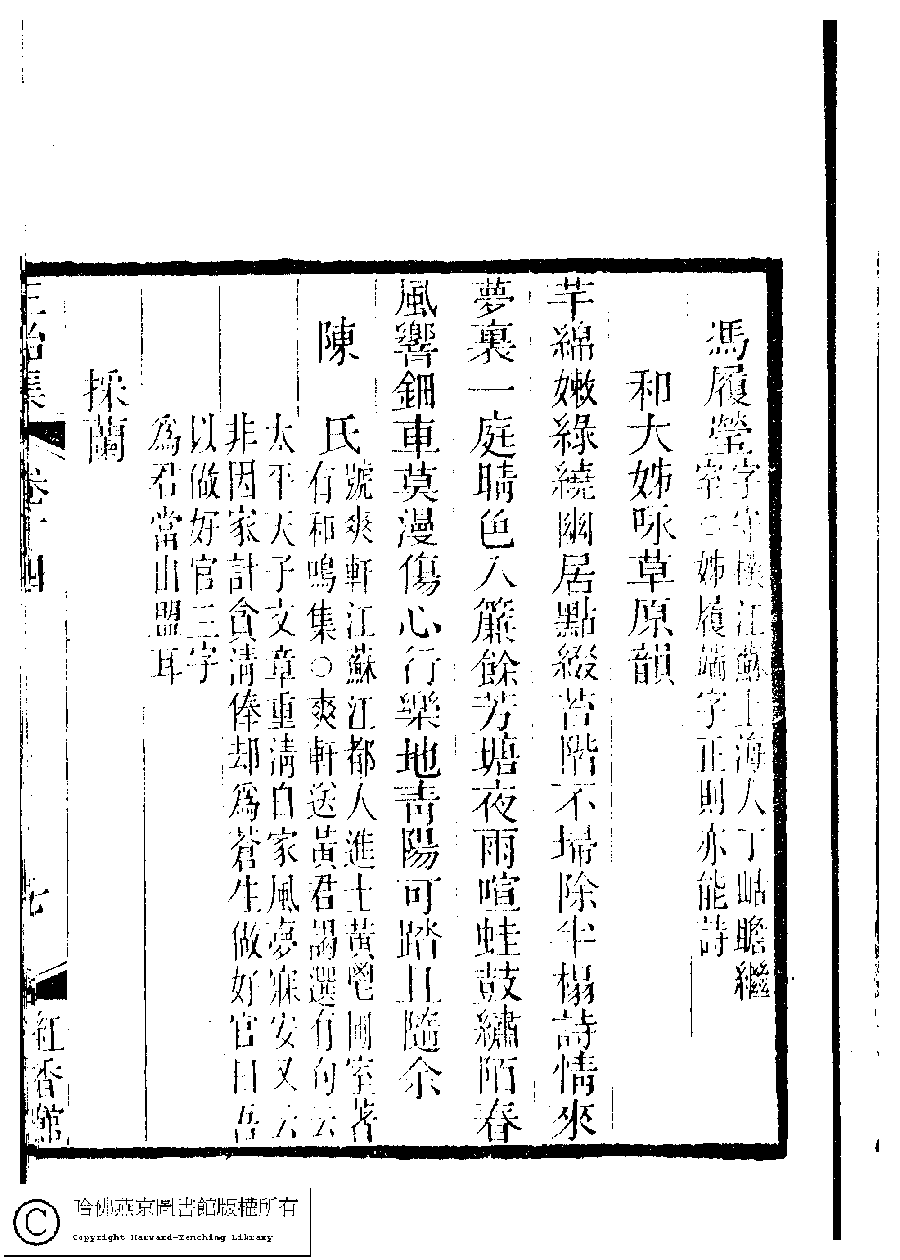 馮履瑩
字守樸江蘇上海人丁岵瞻繼
室○姊履端字正則亦能詩
和大姊咏草原韻
芊綿嫩綠繞幽居點綴苔階不埽除半榻詩情來
夢裏一庭晴色入簾餘芳塘夜雨喧蛙鼓繡陌春
風響鈿車莫漫傷心行樂地青陽可踏且隨余
陳氏
號爽軒江蘇江都人進士黃鬯圃室著
有和鳴集○爽軒送黃君謁選有句云
太平天子文章重清白家風夢寐安又云
非因家計貪清俸却為蒼生做好官曰吾
以做好官三字
為君當山盟耳
採蘭
正始集 卷十四
紅香館
哈佛燕京圖書館版權所有
Copyright Harvard-Yenching Library